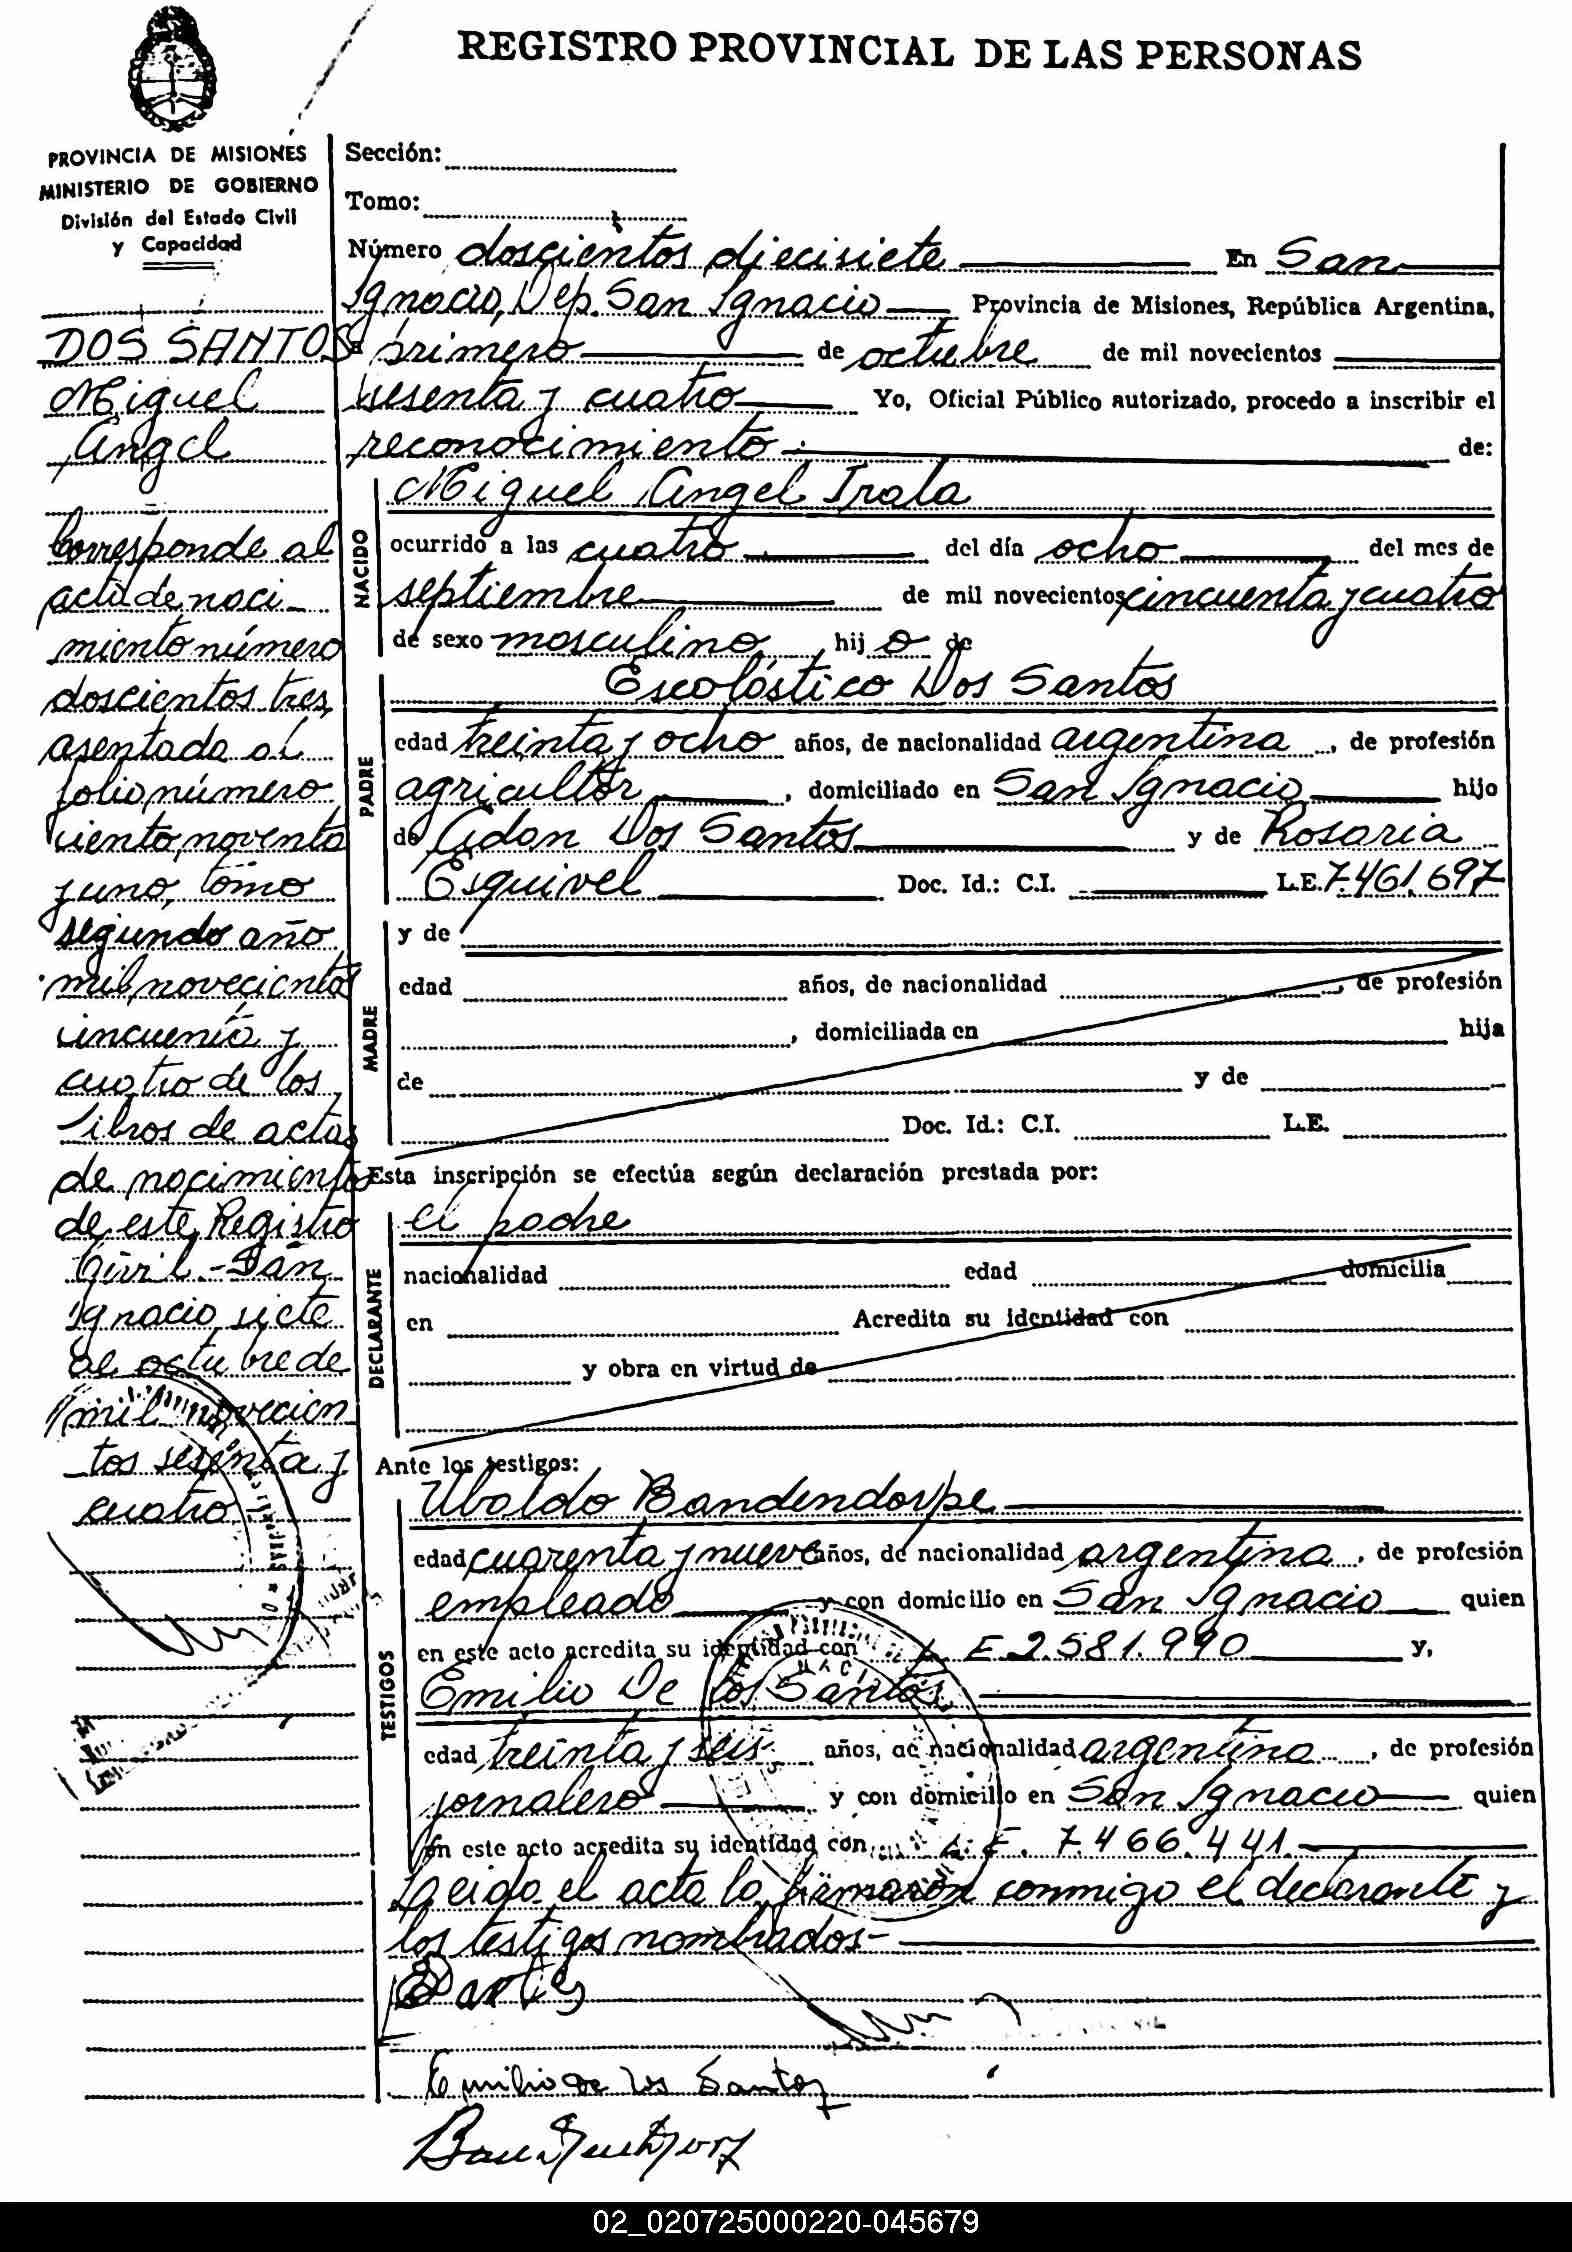 REGISTRO PROVINCIAL DE LAS PERSONAS
PROVINCIA DE MISIONES
MINISTERIO DE GOBIERNO
División del Estado Civil
y Capacidad
DOS SANTOS
Miguel
Angel
Corresponde al
acta de naci
miento número
doscientos tres,
asentada al
folio número
ciento noventa
y uno, tomo
segundo año
mil novecientos
cincuenta y
cuatro de los
libros de actas
de nacimientos
de este Registro
Civil.- San
Ignacio, siete
de octubre de
mil novecien
tos sesenta y
cuatro
Sección:
Tomo:
Número doscientos diecisiete En San
Ignacio, Dep. San Ignacio Provincia de Misiones, República Argentina,
a primero de octubre de mil novecientos
sesenta y cuatro Yo, Oficial Público autorizado, procedo a inscribir el
reconocimiento de:
NACIDO
Miguel Angel Irala
ocurrido a las cuatro del día ocho del mes de
septiembre de mil novecientos cincuenta y cuatro
de sexo masculino, hij o de
PADRE
Escolástico Dos Santos
edad treinta y ocho años, de nacionalidad argentina, de profesión
agricultor, domiciliado en San Ignacio hijo
de Adan Dos Santos y de Rosaria
Esquivel Doc. Id.: C.I. L.E. 7.461.697
MADRE
y de
edad años, de nacionalidad , de profesión
, domiciliada en hija
de y de
Doc. Id.: C.I. L.E.
Esta inscripción se efectúa según declaración prestada por:
DECLARANTE
el padre
nacionalidad edad domicilia
en Acredita su identidad con
y obra en virtud de
Ante los testigos:
TESTIGOS
Ubaldo Bandendorpe
edad cuarenta y nueve años, de nacionalidad argentina, de profesión
empleado y con domicilio en San Ignacio quien
en este acto acredita su identidad con L.E. 2.581.990 y,
Emilio De los Santos
edad treinta y seis años, de nacionalidad argentina, de profesión
jornalero y con domicilio en San Ignacio quien
en este acto acredita su identidad con L.E. 7.466.441.
Leida el acta la firmaron conmigo el declarante y
los testigos nombrados-
Emilio de los Santos
02_020725000220-045679